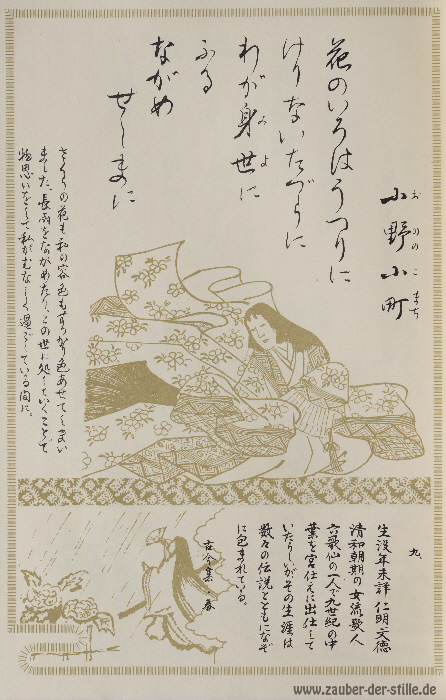 小野小町
おののこまち
花のいろはうつりに
けりないたづらに
わが身世に
みよ
ふる
ながめ
せしまに
さくらの花も私の容色もすっかり色あせてしまい
ました。長雨をながめたり、この世に処していくことで
物思いをして私がむなしく過ごしている間に。
九
生没年未詳 仁明文徳
清和朝期の女流歌人
六歌仙の一人で九世紀の中
葉を宮仕えに出仕して
いたらしいがその生涯は
数々の伝説とともになぞ
に包まれている。
古今集・春
www.zauber-der-stille.de